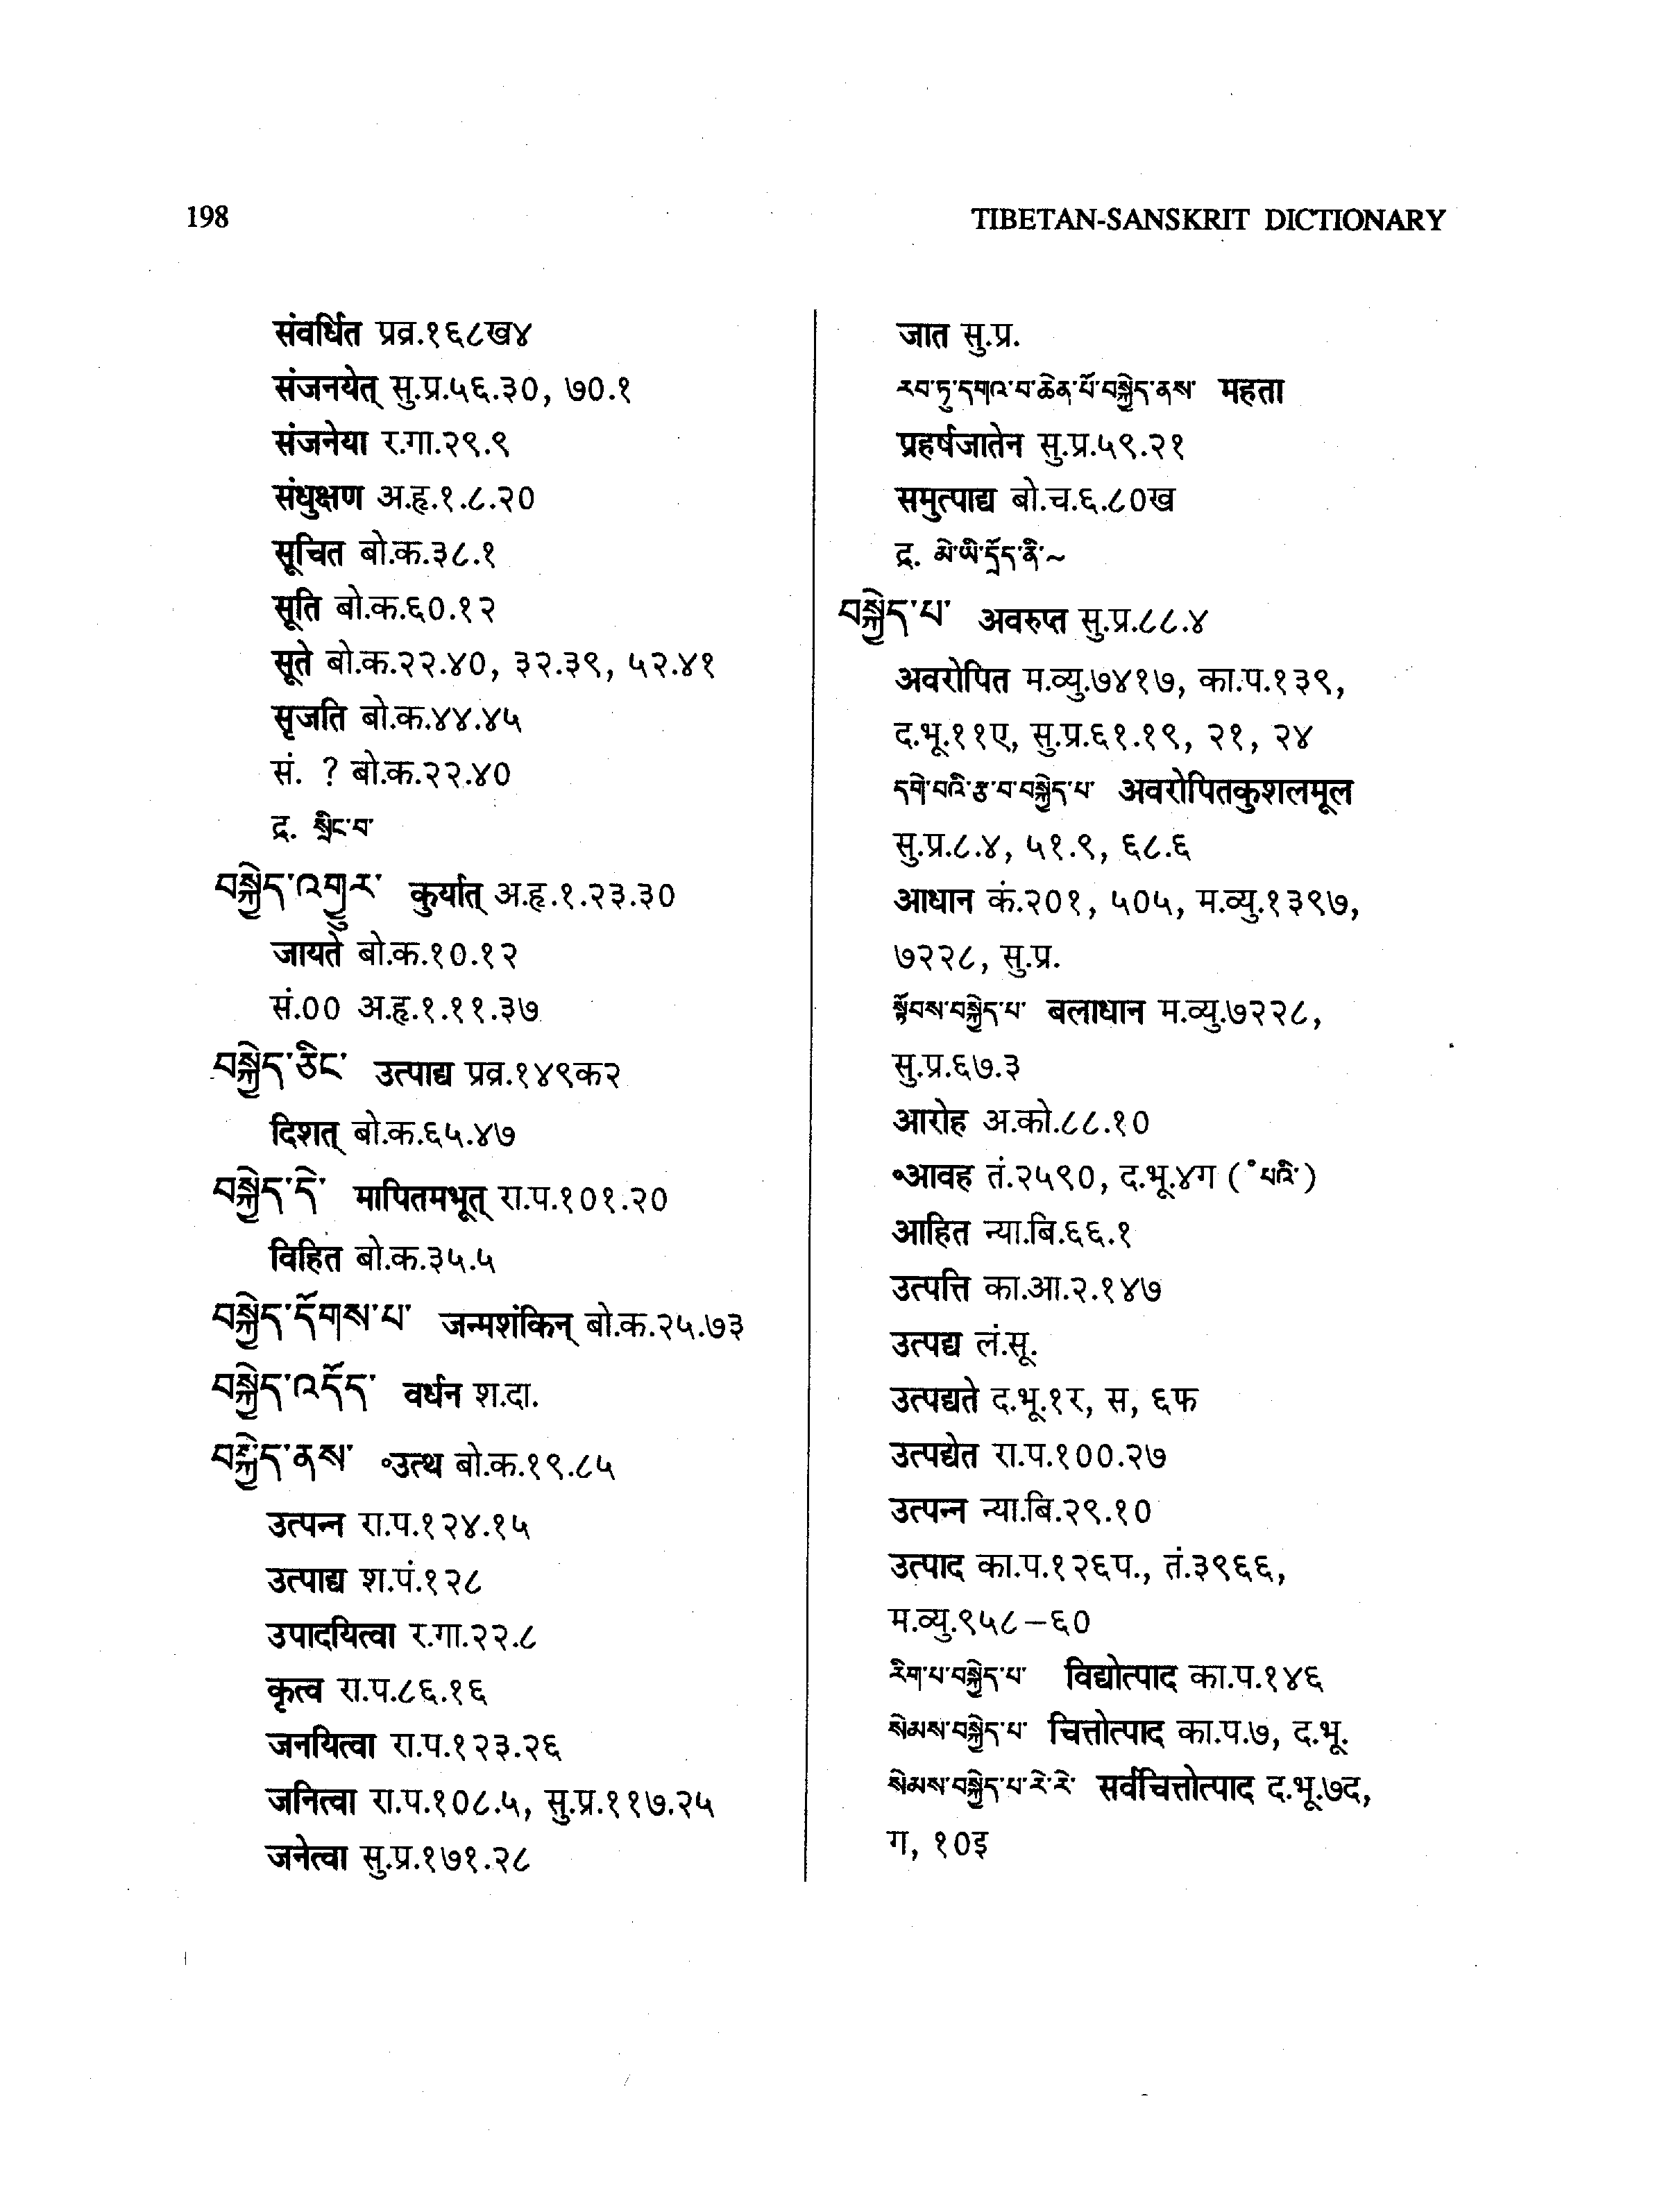 198
TIBETAN-SANSKRIT DICTIONARY
संवर्धित प्रव्र.१६८ख४
संजनयेत् सु.प्र.५६.३०, ७०.१
संजनेया र.गा.२९.९
संधुक्षण अ.हृ.१.८.२०
सूचित बो.क.३८.१
सूति बो.क.६०.१२
सूते बो.क.२२.४०, ३२.३९, ५२.४१
सृजति बो.क.४४.४५
सं. ? बो.क.२२.४०
द्र. སྲིང་བ་
བསྐྱེད་འགྱུར་ कुर्यात् अ.हृ.१.२३.३०
जायते बो.क.१०.१२
सं.०० अ.हृ.१.११.३७
བསྐྱེད་ཅིང་ उत्पाद्य प्रव्र.१४९क२
दिशत् बो.क.६५.४७
བསྐྱེད་དེ་ मापितमभूत् रा.प.१०१.२०
विहित बो.क.३५.५
བསྐྱེད་དོགས་པ་ जन्मशंकिन् बो.क.२५.७३
བསྐྱེད་འདོད་ वर्धन श.दा.
བསྐྱེད་ནས་ ॰उत्थ बो.क.१९.८५
उत्पन्न रा.प.१२४.१५
उत्पाद्य श.पं.१२८
उपादयित्वा र.गा.२२.८
कृत्व रा.प.८६.१६
जनयित्वा रा.प.१२३.२६
जनित्वा रा.प.१०८.५, सु.प्र.११७.२५
जनेत्वा सु.प्र.१७१.२८
जात सु.प्र.
རབ་ཏུ་དགའ་བ་ཆེན་པོ་བསྐྱེད་ནས་ महता
प्रहर्षजातेन सु.प्र.५९.२१
समुत्पाद्य बो.च.६.८०ख
द्र. མེ་ཡི་དྲོད་ནི་~
བསྐྱེད་པ་ अवरुप्त सु.प्र.८८.४
अवरोपित म.व्यु.७४१७, का.प.१३९,
द.भू.११ए, सु.प्र.६१.१९, २१, २४
དགེ་བའི་རྩ་བ་བསྐྱེད་པ་ अवरोपितकुशलमूल
सु.प्र.८.४, ५१.९, ६८.६
आधान कं.२०१, ५०५, म.व्यु.१३९७,
७२२८, सु.प्र.
སྟོབས་བསྐྱེད་པ་ बलाधान म.व्यु.७२२८,
सु.प्र.६७.३
आरोह अ.को.८८.१०
॰आवह तं.२५९०, द.भू.४ग (॰པའི་)
आहित न्या.बि.६६.१
उत्पत्ति का.आ.२.१४७
उत्पद्य लं.सू.
उत्पद्यते द.भू.१र, स, ६फ
उत्पद्येत रा.प.१००.२७
उत्पन्न न्या.बि.२९.१०
उत्पाद का.प.१२६प., तं.३९६६,
म.व्यु.९५८–६०
རིག་པ་བསྐྱེད་པ་ विद्योत्पाद का.प.१४६
སེམས་བསྐྱེད་པ་ चित्तोत्पाद का.प.७, द.भू.
སེམས་བསྐྱེད་པ་རེ་རེ་ सर्वचित्तोत्पाद द.भू.७द,
ग, १०इ